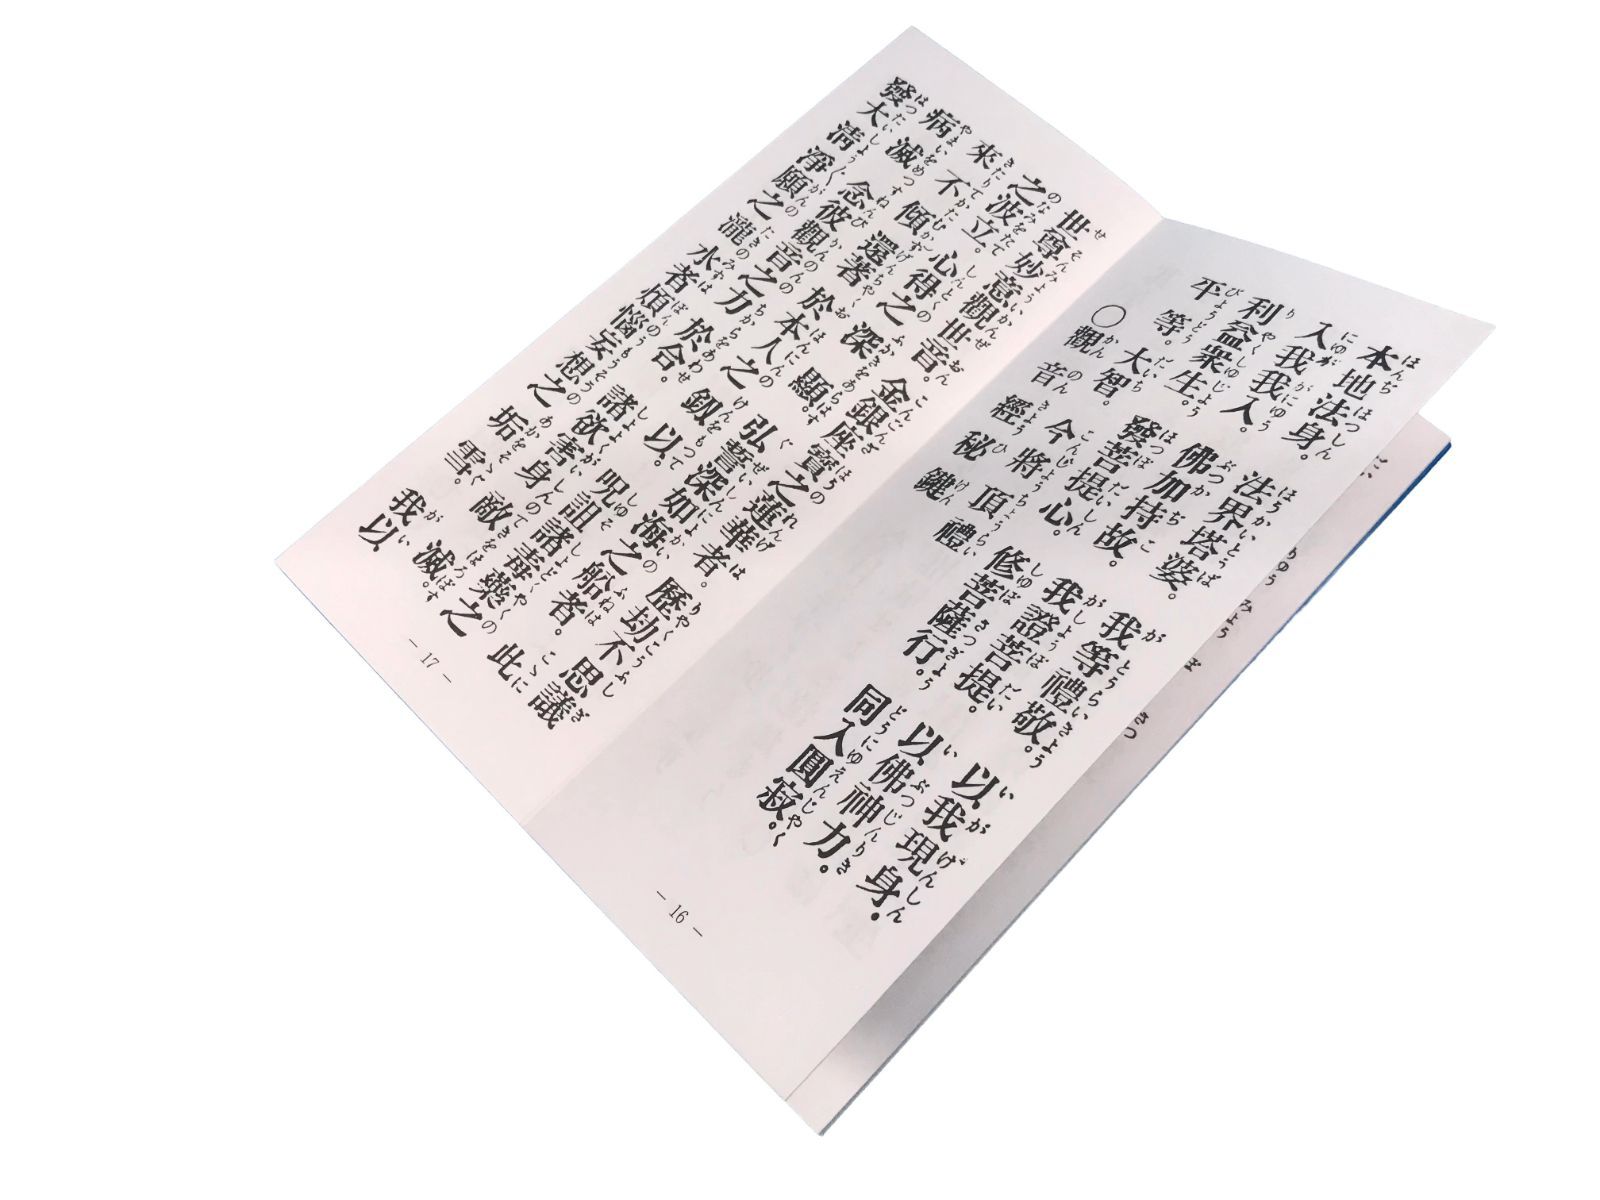 本地法身。法界塔婆。我等禮敬。以我現身。
入我我入。佛加持故。我證菩提。以佛神力。
利益衆生。發菩提心。修菩薩行。同入圓寂。
平等。大智。今將頂禮
○觀音經秘鍵
－16－
世尊妙意觀世音。金銀座寶之蓮華者。歷劫不思議
之波立。心得之深顯。弘誓深如海之船者。此
來不傾還著於本人之釼以。呪詛諸毒藥之
病滅念彼觀音之力於合。諸欲害身敵滅。
發大清淨願之瀧水者煩惱妄想之垢雪。我以
－17－